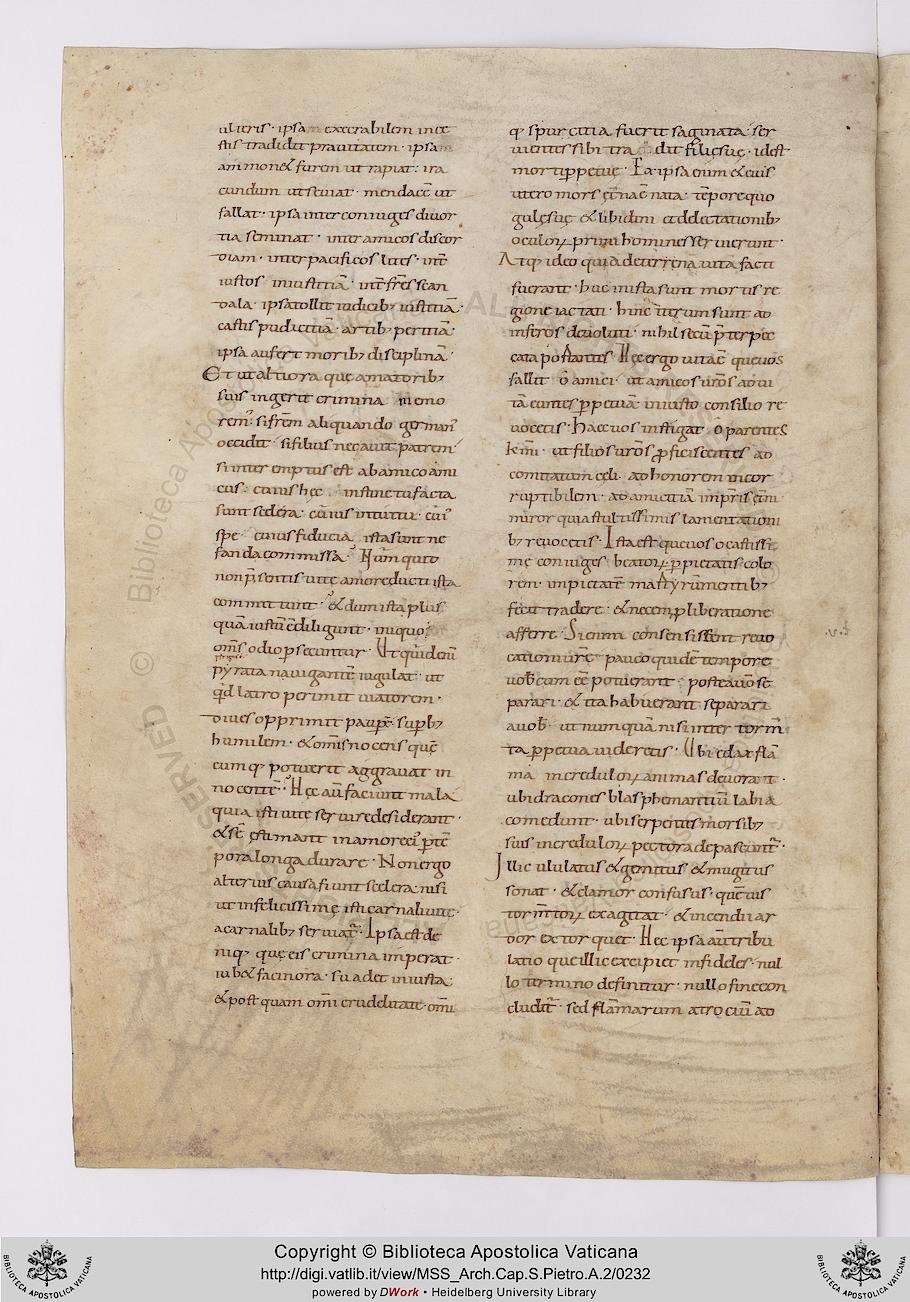 ulieris · ipsam execrabilem ince
stis tradidit pravitatem · ipsam
ammonet furem ut rapiat : ira
cundum ut seviat · mendacē ut
fallat · ipsa inter coniuges divor
tia seminat · inter amicos discor
diam · inter pacificos lites · int̄
iustos iniustitiā · int̄ fr̄es scan
dala · ipsa tollit iudicib; iustitiā ·
castis pudicitiā · artib; peritiā ·
ipsa aufert morib; disciplinā ·
Et ut altiora que amatorib;
suis ingerit crimina memo
rem · si frēm aliquando german'
occidit · si filius necavit patrem ·
si interemptus est ab amico ami
cus · cuius hęc instinctu facta
sunt scelera · cuius intuitu · cui'
spe cuius fiducia ista sunt ne
fanda commissa · Nūm quid
non p̄sentis vitę amore ducti ista
committunt · & dum ista plus
quā iustū ē diligunt · iniquo
om̄s odio p̄secuntur · Ut quidem
pyrata navigantē iugulat · ut
qd latro perimit viatorem ·
dives opprimit paupē · sup̄b;
humilem · & om̄s nocens quē
cumq; potuerit aggravat in
nocentē · Hęc aū faciunt mala
qui a isti vitę servire desiderant ·
& sē ęstimant in amore ei' p̄tē
pora longa durare · Non ergo
alterius causa fiunt scelera nisi
ut infelicissimę isti carnali vitę ·
a carnalib; serviat̄ · Ipsa est de
niq; quę eis crimina imperat ·
iubet facinora · suadet iniusta
& post quam omī crudelitate · omī
q; spurcitia fuerit saginata · ser
vientes sibi tradit filię suę · idest
morti p̄petuę · Ex ipsa enim & eius
utero mors ēnāc nata · tēpore quo
gulę suę & libidini et delectationib;
oculoꝝ primi homines servierunt ·
Atq; ideo quia de terrena vita facti
fuerant · huc in ista sunt mortis re
gione iactati · hinc iterum sunt ad
inferos devoluti · nihil secū p̄ter pec
cata portantes · Hęc ergo vita ē quę vos
fallit · o amici · ut amicos vrōs ad vi
tā euntes p̄petuā · iniusto consilio re
vocetis · Hęc vos instigat o parentes
kmi · ut filios vrōs p̄ficiscentes ad
comitatum cęli · ad honorem incor
ruptibilem · ad amicitiā imp̄ris ęt̄ni
miror quia stultissimis lamentationi
b; revocetis · Ista est quę vos o castissi
mę coniuges beatoꝝ p̄pietatis colo
rem · impietatē martyrū mentib;
fecit tradere · & necem p̄ liberatione
afferre · Si enim consensissent revo
cationi urę · pauco quidē tempore
vob̄cum eē potuerant · postea vō se
parari · & ita habuerant separari
a vob̄ · ut numquā nisi inter torm̄
ta p̄petua videretis · Ubi edax flā
ma incredulоꝝ animas devorat ·
ubi dracones blasphemantiū labia
comedunt · ubi serpentes morsib;
suis increduloꝝ pectora depascunt̄ ·
Illic ululatus & gemitus & mugitus
sonat · & clamor confusus · quē vis
torm̄toꝝ exagitat · & incendii ar
dor extorquet · Hęc ipsa aū tribu
latio que illic excipiet infideles · nul
lo termino definitur · nullo fine con
cludit̄ · sed flāmarum atrociū ad
Copyright © Biblioteca Apostolica Vaticana
http://digi.vatlib.it/view/MSS_Arch.Cap.S.Pietro.A.2/0232
powered by DWork • Heidelberg University Library